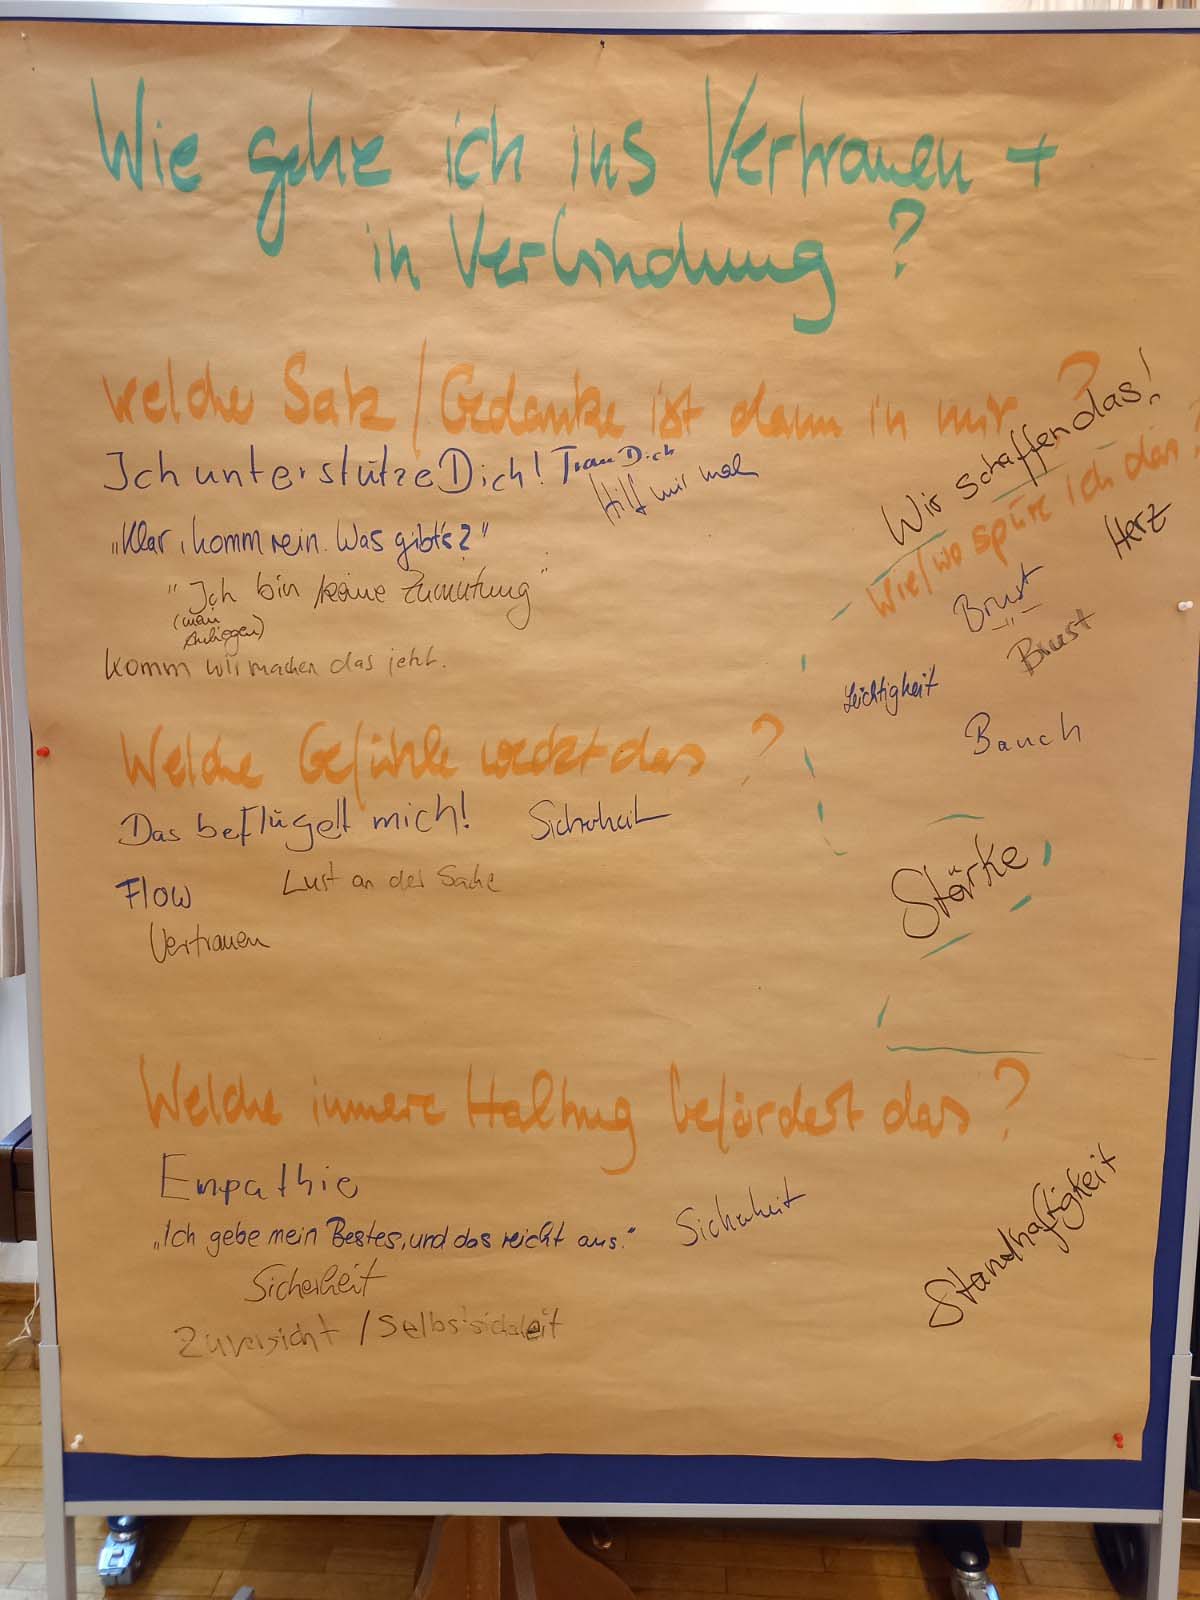 Wie gehe ich ins Vertrauen +
in Verbindung ?
welche Satz / Gedanke ist dann in mir ?
Ich unterstütze Dich! Trau Dich
Hilf mir mal
Wir schaffen das!
„Klar, komm rein. Was gibt's?"
"Ich bin keine Zumutung"
(mein
Anliegen)
Komm wir machen das jetzt.
Wie/wo spüre ich das?
Herz
Brust
Brust
Leichtigkeit
Bauch
Stärke
Welche Gefühle weckt das ?
Das beflügelt mich! Sicherheit
Flow Lust an der Sache
Vertrauen
Welche innere Haltung befördert das ?
Empathie
„Ich gebe mein Bestes, und das reicht aus." Sicherheit
Sicherheit
Zuversicht / Selbstsicherheit
Standhaftigkeit